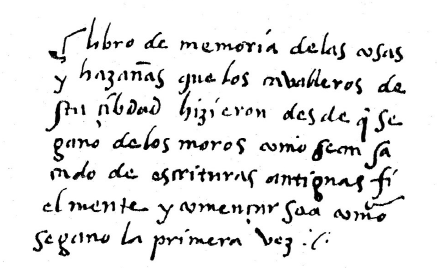 libro de memoria delas cosas
y hazañas que los cavalleros de
sta cibdad hizieron desde q̃ se
ganó delos moros como sean sa
cado de escrituras antiguas fi
elmente y comencar sea como
segano la primera vez